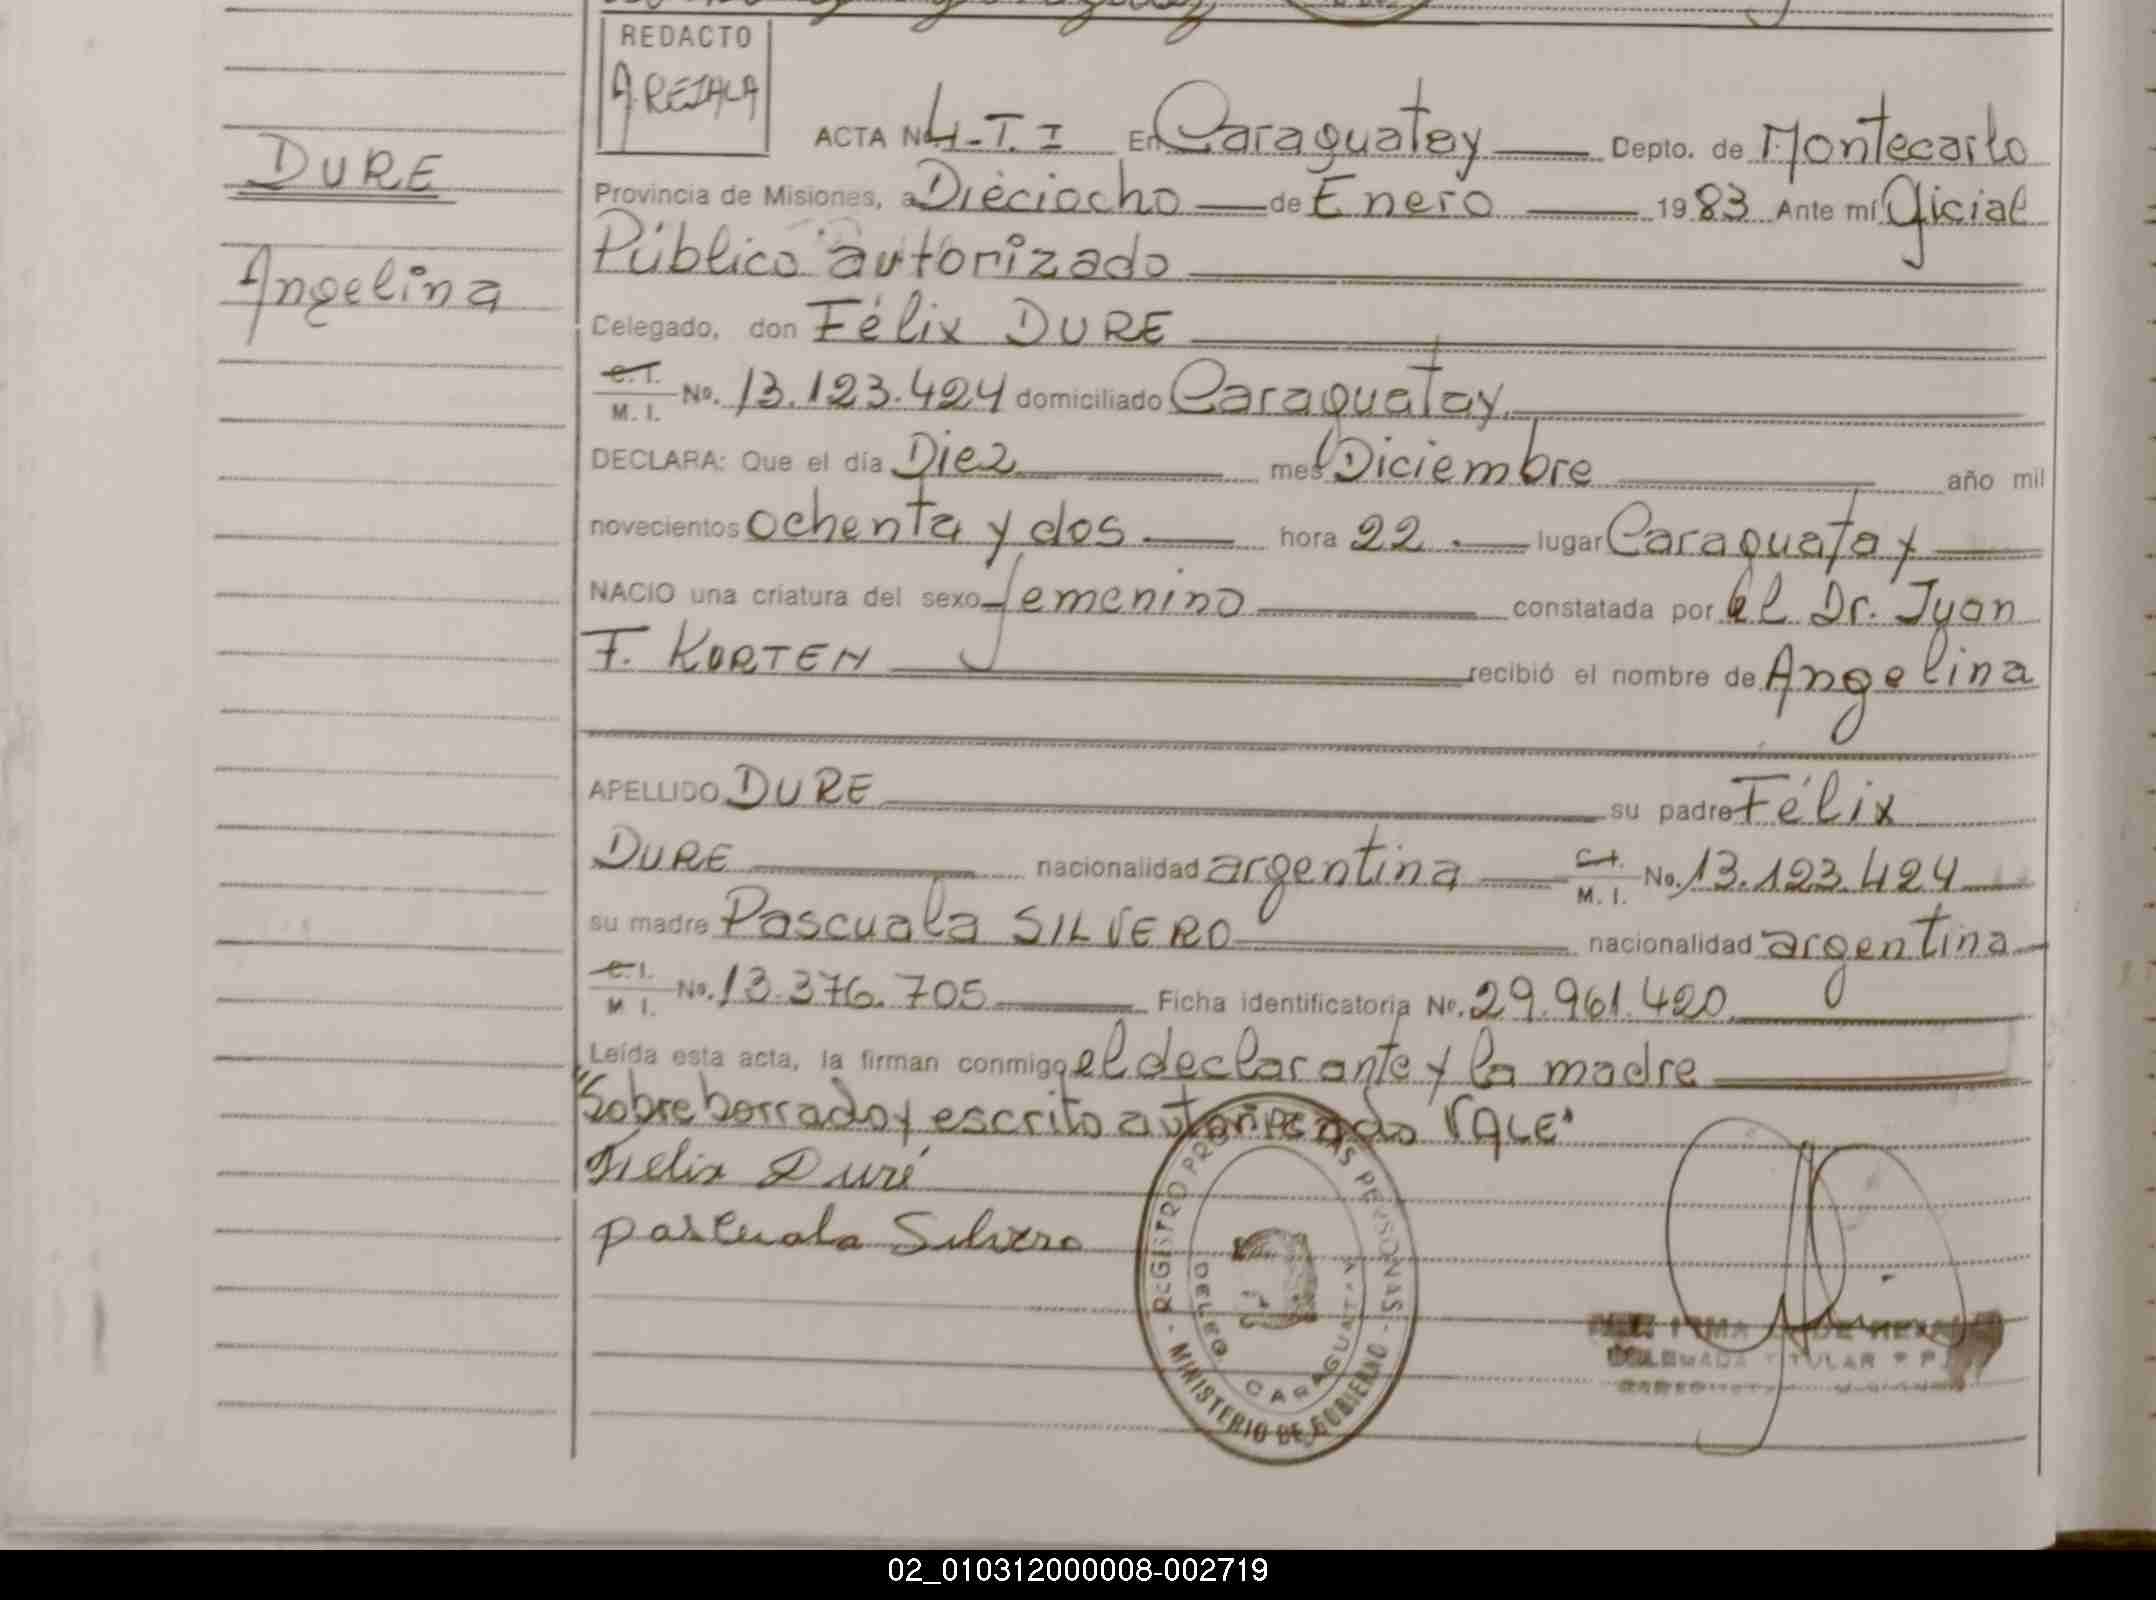 REDACTO
A. REJALA
DURE
Angelina
ACTA No 4-T. I En Caraguatay Depto. de Montecarlo
Provincia de Misiones, a Dieciocho de Enero 1983 Ante mí Oficial
Público autorizado
Celegado, don Félix DURE
C.I. M. I. No. 13.123.424 domiciliado Caraguatay
DECLARA: Que el día Diez mes Diciembre año mil
novecientos ochenta y dos hora 22 lugar Caraguatay
NACIO una criatura del sexo femenino constatada por el Dr. Juan
F. KORTEN recibió el nombre de Angelina
APELLIDO DURE su padre Félix
DURE nacionalidad argentina C.I. M. I. No. 13.123.424
su madre Pascuala SILVERO nacionalidad argentina
C.I. M. I. No. 13.376.705 Ficha identificatoria No. 29.961.420
Leída esta acta, la firman conmigo el declarante y la madre
"Sobreborrado y escrito autorizado VALE"
Felix Duré
pascuala Silvero
REGISTRO PROV. DE LAS PERSONAS - MINISTERIO DE GOBIERNO -
DELEG. CARAGUATAY
TITULAR
02_010312000008-002719